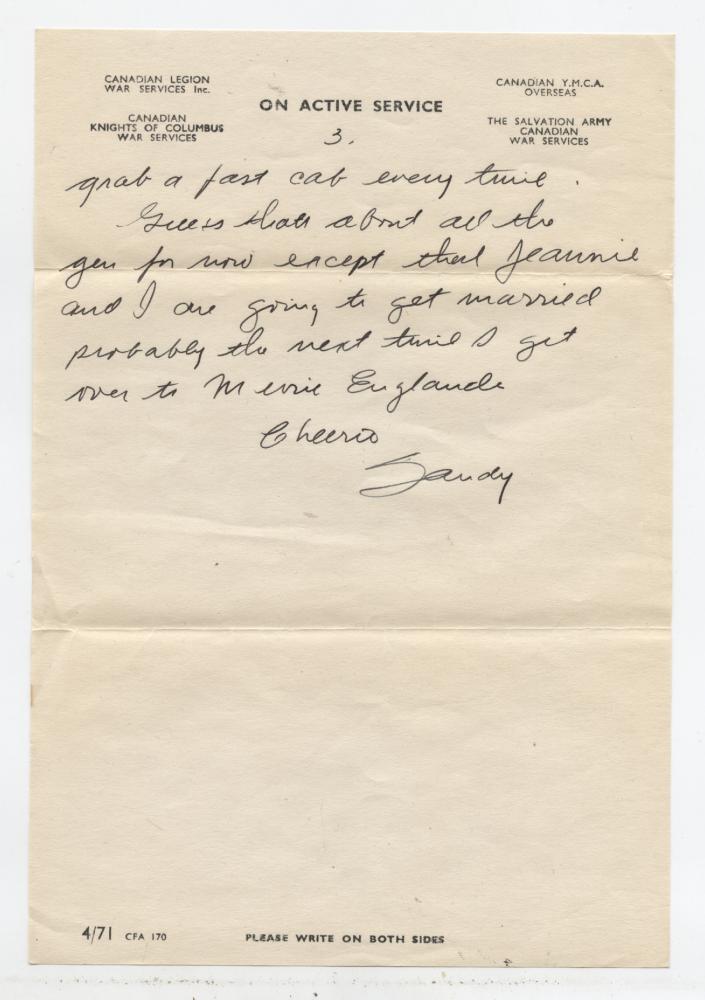 CANADIAN LEGION
WAR SERVICES Inc.
CANADIAN
KNIGHTS OF COLUMBUS
WAR SERVICES
ON ACTIVE SERVICE
CANADIAN Y.M.C.A.
OVERSEAS
THE SALVATION ARMY
CANADIAN
WAR SERVICES
3.
grab a fast cab every time.
Guess thats about all the
gen for now except that Jeannie
and I are going to get married
probably the next time I get
over to Merrie Englande
Cheerio
Sandy
4/71 CFA 170
PLEASE WRITE ON BOTH SIDES